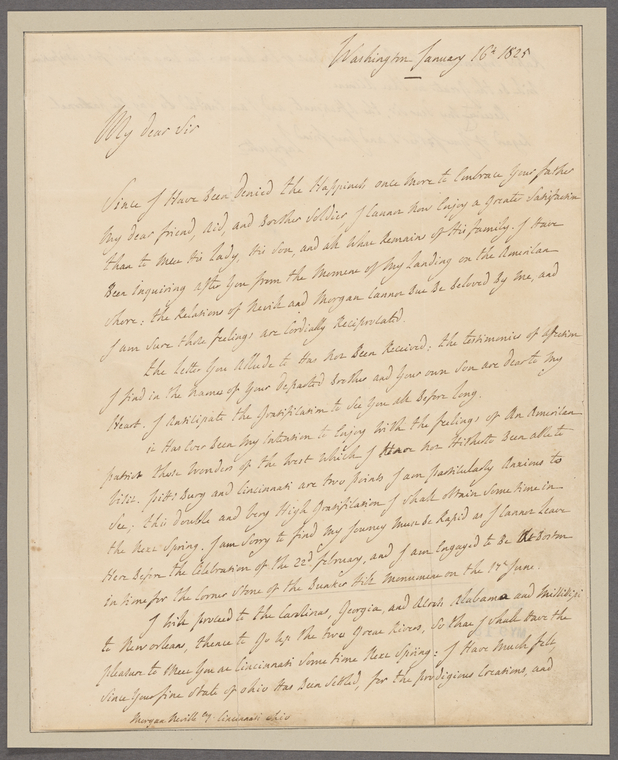 Washington January 16th 1825
My dear Sir
Since I Have Been Denied the Happiness once more to Embrace Your father
My dear friend, Aid, and Brother Soldier I Cannot Now Enjoy a Greater Satisfaction
than to Meet His Lady, His Son, and all What Remains of His family. I Have
Been Enquiring after You from the Moment of My Landing on the American
Shore: the Relations of Nevill and Morgan Cannot But Be Beloved By me, and
I am Sure those feelings are Cordially Reciprocated.
the Letter You Allude to Has Not Been Received; the testimonies of affection
I find in the Names of Your Departed Brother and Your own Son are dear to My
Heart. I Anticipate the Gratification to See You all Before Long.
it Has Ever Been My intention to Enjoy With the feelings of An American
patriot those Wonders of the West Which I Have Not Hitherto Been able to
Visit. pitts Burg and Cincinnati are two points I am particularly Anxious to
See; this double and Very High Gratification I Shall obtain Some time in
the Next Spring. I am Sorry to find My Journey Must be Rapid as I Cannot Leave
Here Before the Celebration of the 22d february, and I am Engaged to Be at Boston
in time for the Corner Stone of the Bunker Hill Monument on the 17th June.
I will proceed to the Carolinas, Georgia, and Across Alabama and Mississipi
to New orleans, thence to Go Up the two Great Rivers, So that I Shall Have the
pleasure to Meet You at Cincinnati Some time Next Spring: I Have Much felt
Since Your fine State of ohio Has Been Settled, for the prodigious Creations, and
Morgan Neville esq Cincinnati ohio